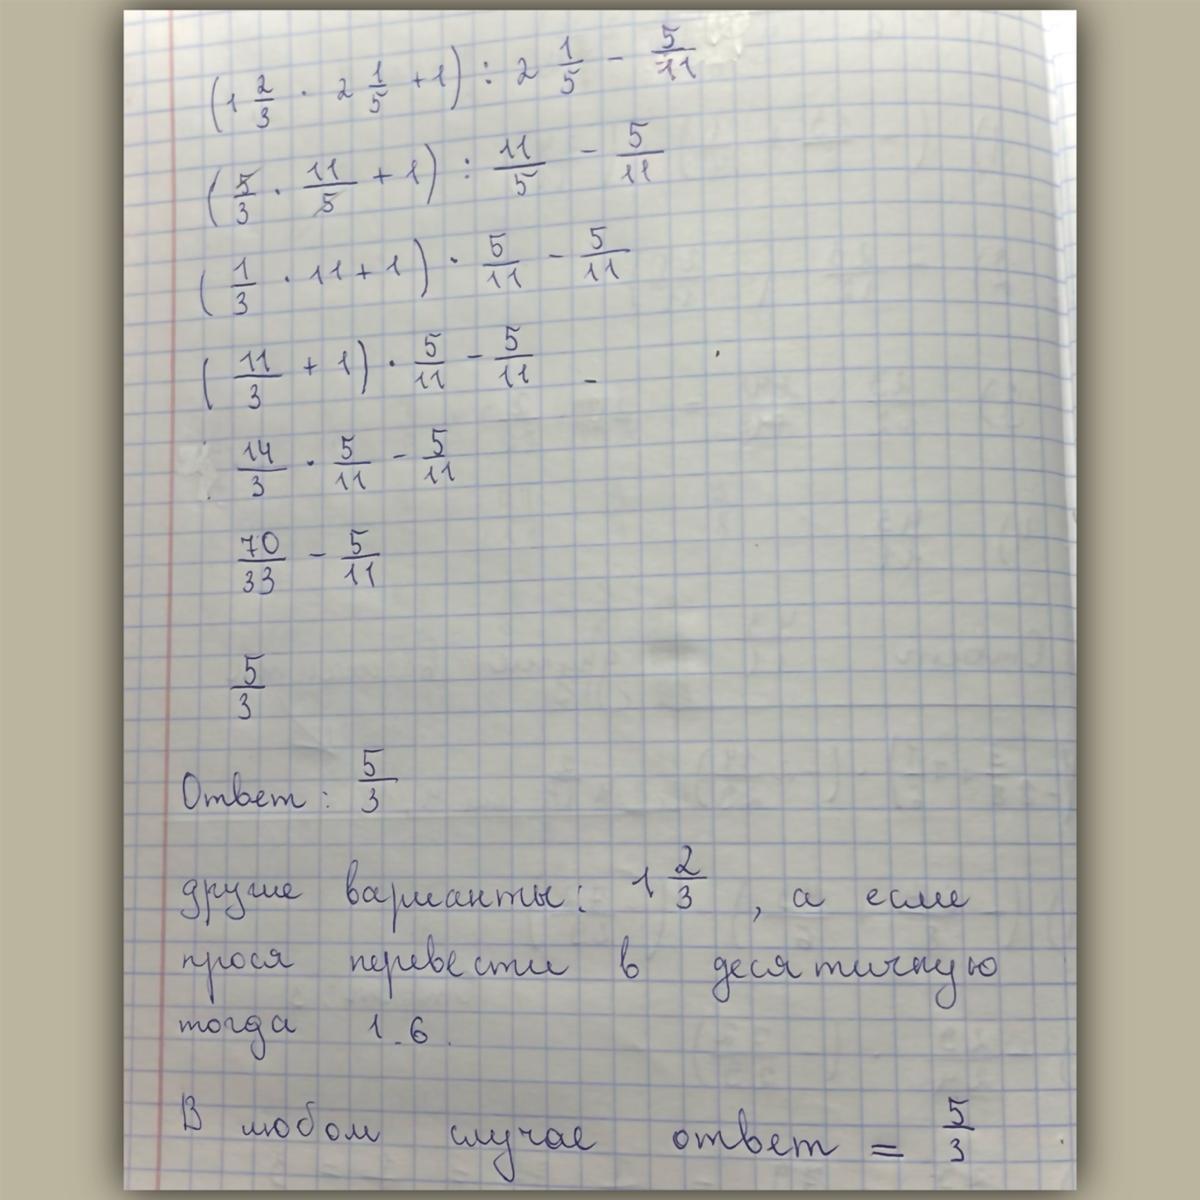 (1 2/3 · 2 1/5 + 1) : 2 1/5 - 5/11
(5/3 · 11/5 + 1) : 11/5 - 5/11
(1/3 · 11 + 1) · 5/11 - 5/11
(11/3 + 1) · 5/11 - 5/11
14/3 · 5/11 - 5/11
70/33 - 5/11
5/3
Ответ: 5/3
другие варианты: 1 2/3, а если
прося перевести в десятичную
тогда 1.6.
В любом случае ответ = 5/3